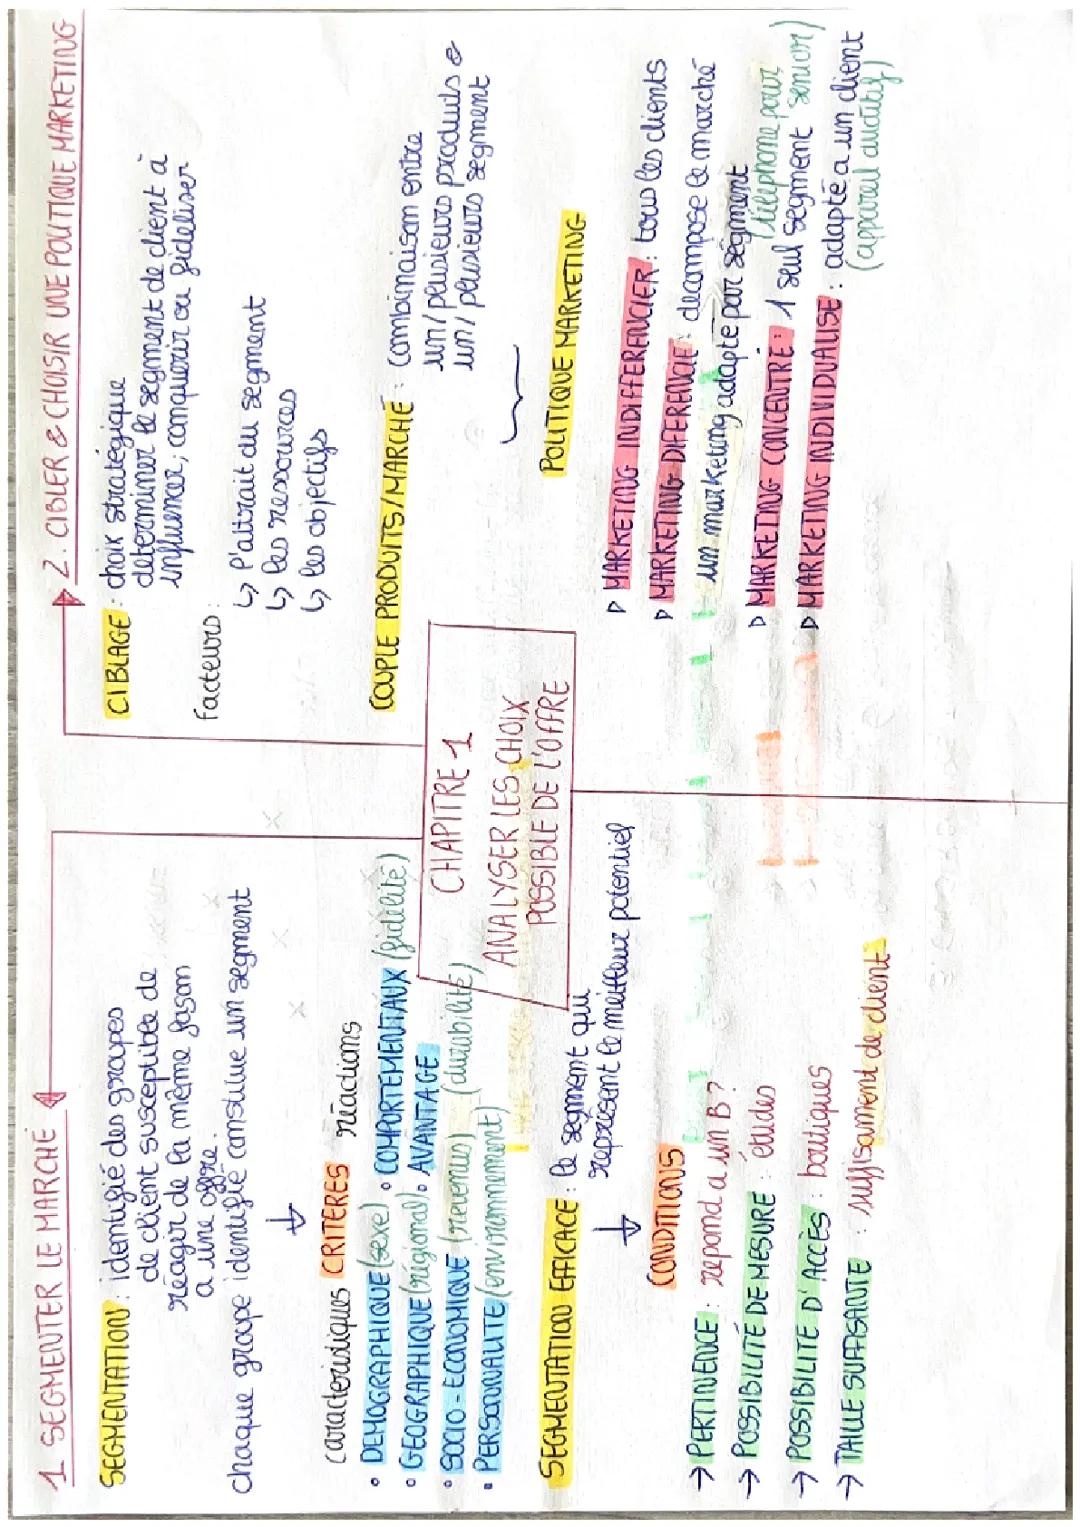 CHAPITRE 1
ANALYSER LES CHOIX
POSSIBLE DE L'OFFRE
1 SEGMENTER LE MARCHÉ
SEGMENTATION : identifié des groupes
de client susceptible de
réagir de la même façon
a une offre.
chaque groupe identifié constitue un segment
↓
caractéristiques CRITÈRES réactions
• DEMOGRAPHIQUE (sexe) • COMPORTEMENTAUX (fidélité)
• GEOGRAPHIQUE (régional) • AVANTAGE
• SOCIO-ECONOMIQUE (revenus) (durabilité)
• PERSONNALITE (environnement)
SEGMENTATION EFFICACE : le segment qui
représent le meilleur potentiel
↓
CONDITIONS
→ PERTINENCE : repond a un B ?
→ POSSIBILITÉ DE MESURE : études
→ POSSIBILITE D'ACCÈS : boutiques
→ TAILLE SUFFISANTE : suffisament de client
2. CIBLER & CHOISIR UNE POLITIQUE MARKETING
CIBLAGE : choix stratégique
déterminer le segment de client à
influencer, conquérir ou fidéliser
Facteurs :
↳ l'attrait du segment
↳ les ressources
↳ les objectifs
COUPLE PRODUITS/MARCHÉ : combinaison entre
un / plusieurs produits &
un / plusieurs segment
POLITIQUE MARKETING
▷ MARKETING INDIFFERENCIER : tous les clients
▷ MARKETING DIFERENCIÉ : decompose le marché
un marketing adapté par segment
(téléphone pour
▷ MARKETING CONCENTRÉ : 1 seul segment senior)
▷ MARKETING INDIVIDUALISE : adapté a un client
(appareil auditif)